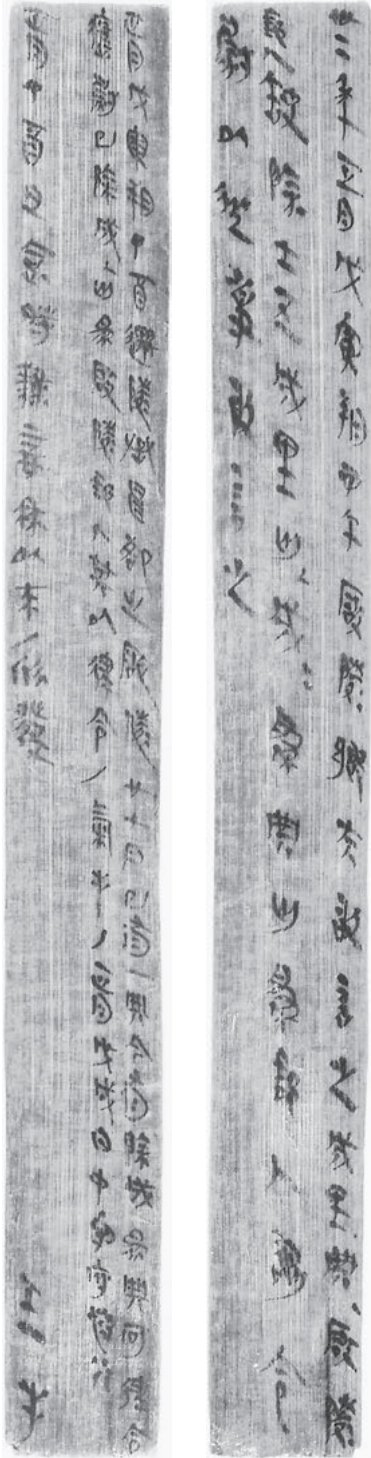 卅二年正月戊寅朔甲午啟陵鄉夫敢言之成里典啟陵
郵人缺除士五成里匄成成為典匄為郵人謁令
尉以從事敢言之
正月戊寅朔丁酉遷陵丞昌卻之啟陵廿七戶已有一典今有除成為典何律令
應尉已除成匄為啟陵郵人其以律令／氣手／正月戊戌日中守府快行
正月丁酉旦食時隸妾冉以來／欣發 壬手